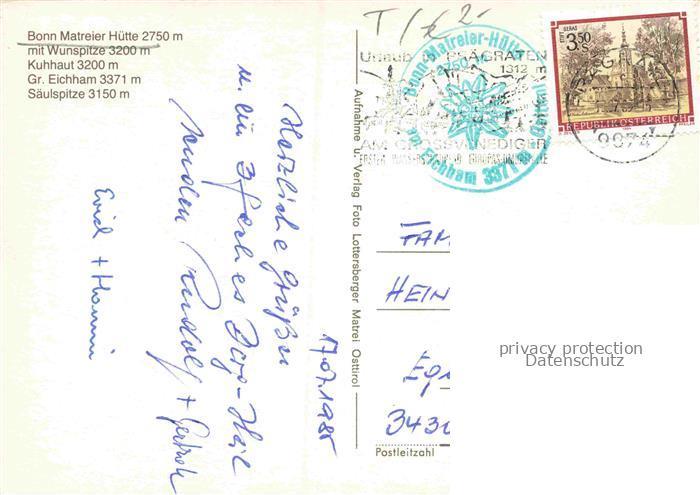 Bonn Matreier Hütte 2750 m
mit Wunspitze 3200 m
Kuhhaut 3200 m
Gr. Eichham 3371 m
Säulspitze 3150 m
T / € 2-
Urlaub PRÄGRATEN
1312 m
AM GROSSVENEDIGER
Bonn-Matreier-Hütte
2750
am Eichham 3371
GERAS
3.50
REPUBLIK ÖSTERREICH
9974
Aufnahme u. Verlag Foto Lottersberger Matrei Osttirol
17.07.1985
Herzliche Grüße
u. ein 3faches Berg-Heil
senden Rudolf + Gertrude
Erich + Hanni
FAM
HEIN
343
Postleitzahl
privacy protection
Datenschutz